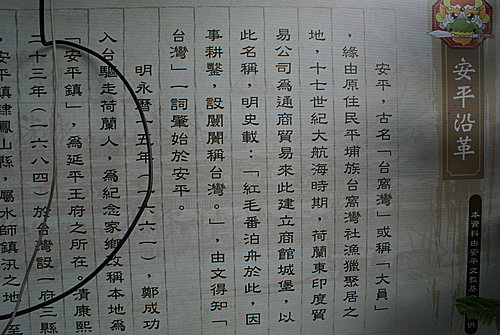 安平沿革
本資料由安平文教基
安平，古名「台窩灣」或稱「大員」
，緣由原住民平埔族台窩灣社漁獵聚居之
地，十七世紀大航海時期，荷蘭東印度貿
易公司為通商貿易來此建立商館城堡，以
此名稱，明史載：「紅毛番泊舟於此，因
事耕鑿，設闤闠稱台灣。」，由文得知「
台灣」一詞肇始於安平。
明永曆十五年（一六六一），鄭成功
入台驅走荷蘭人，為紀念家鄉改稱本地為
「安平鎮」，為延平王府之所在。清康熙
二十三年（一六八四）於台灣設一府三縣
，安平鎮隸鳳山縣，屬水師鎮汛之地，至